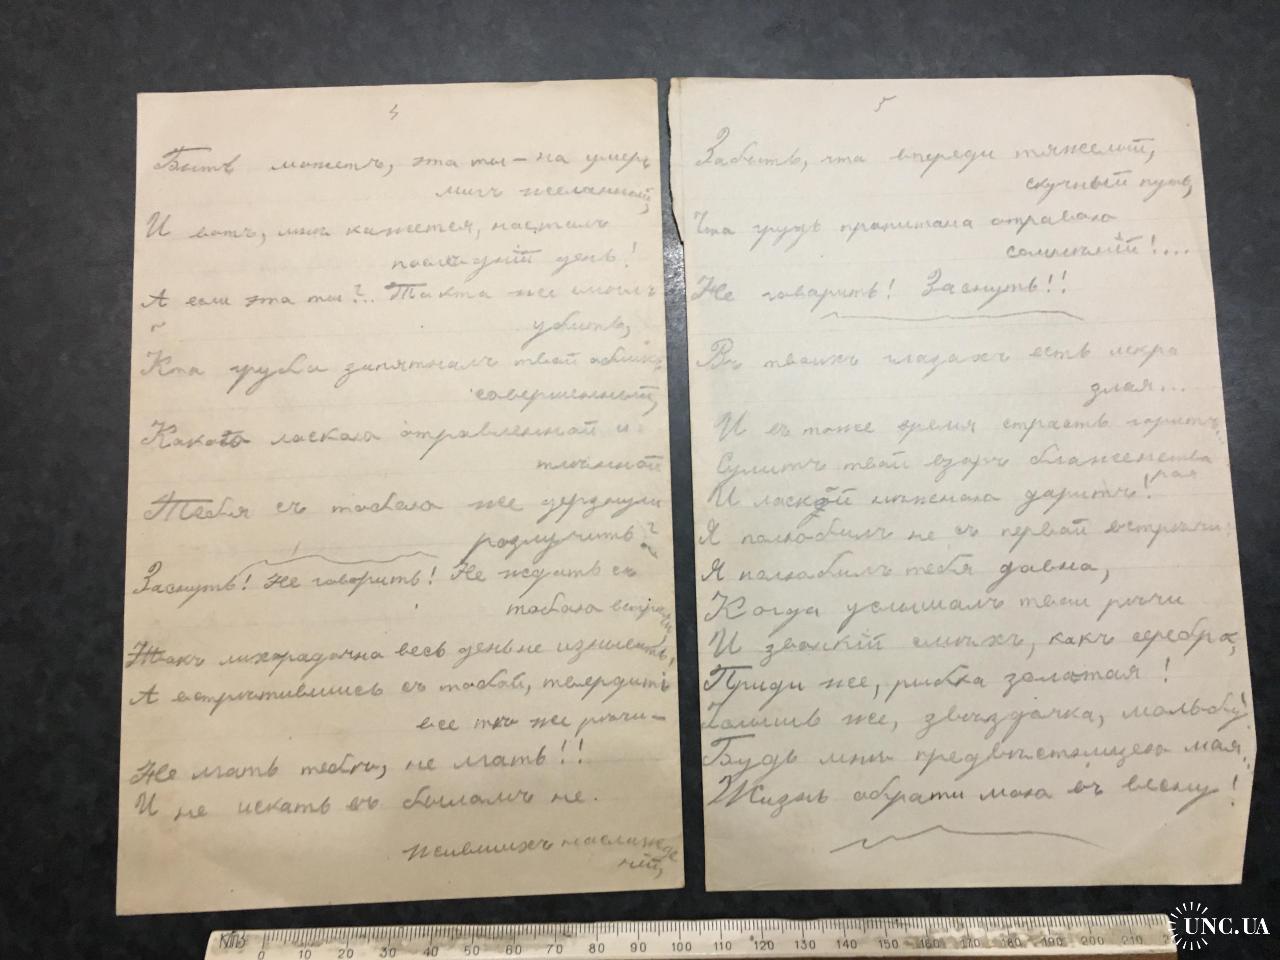 4
Быть можетъ, эта ты — на умеръ
мигъ желанный,
И вотъ, мнѣ кажется, насталъ
послѣдній день!
А если эта ты?.. Такъ кта же смогъ
убить,
Кта груба запятналъ твой обликъ
совершенный,
Какою ласкаю отравленной и
тлѣнной
Тебя съ табаю же дерзнули
разлучить?
Заснуть! Не говорить! Не ждать съ
табаю встрѣчи,
Такъ лихорадачна весь день не изнывать!
А встрѣтившись съ табай, твердить
все тѣ же рѣчи —
Не лгать тебѣ, не лгать!!
И не искать въ быламъ не
жившихъ наслажде
ній,
5
Забыть, чта впереди тяжелый,
скучный путь,
Чта грудь прапитана отраваю
самнѣній!...
Не гаварить! Заснуть!!
Въ тваихъ глазахъ есть искра
злая...
И въ тоже время страсть горитъ..
Сулитъ твай взаръ блаженства
рая
И лаской нѣжнаю даритъ!
Я палюбилъ не съ первай встрѣчи
Я палюбилъ тебя давна,
Когда услышалъ тваи рѣчи
И званкій смѣхъ, какъ серебро,
Приди же, рыбка залатая!
Услышь же, звѣздачка, мальбу!
Будь мнѣ предвѣстницею мая..
Жизнь абрати маю въ весну!
0 10 20 30 40 50 60 70 80 90 100 110 120 130 140 150 160 170 180 190 200 210
UNC.UA